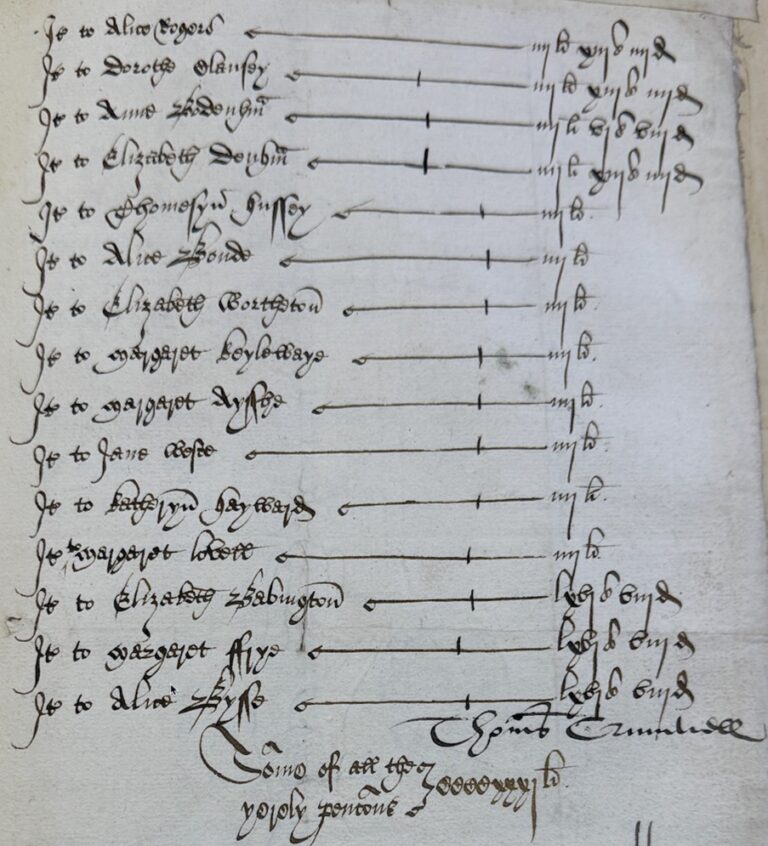 It to Alice Rogers iiij li xiij s iiij d
It to Dorothe Clausey iiij li xiij s iiij d
It to Anne Bodenhm iiij li vj s viij d
It to Elizabeth Denhm iiij li xiij s iiij d
It to Thomesyn hussey iiij li.
It to Alice Bonde iiij li
It to Elizabeth Wortheton iiij li.
It to margaret keylewaye iiij li.
It to margaret Aysshe iiij li.
It to Jane Weste iiij li.
It to katheryn hayward iiij li.
It to margaret lovell iiij li.
It to Elizabeth Babington lxvj s viij d
It to margaret ffrye lxvj s viij d
It to Alice Bysse lxvj s viij d
Thoms Crumwell
Some of all the
yerely pencons ccccxxxj li